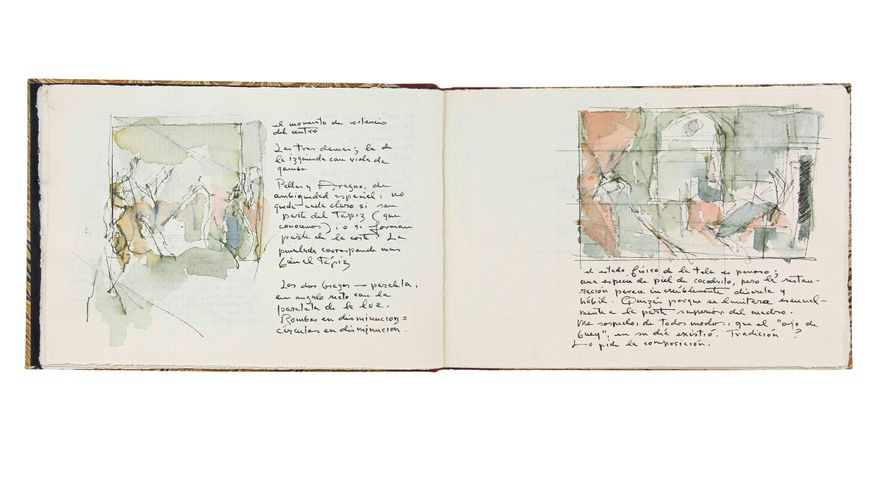 el momento de silencio
del mito
Las tres damas; la de
la izquierda con viola de
gamba
Pallas y Aragne, de
ambigüedad espacial: no
queda nada claro si son
parte del Tapiz (que
conocemos), o si forman
parte de la corte. La
pincelada corresponde mas
bien al Tapiz
Los dos brazos — paralela,
en angulo recto con la
paralela de la luz.
Rombos en disminucion =
circulos en disminucion.
el estado físico de la tela es penoso;
una especie de piel de cocodrilo, pero la restau-
ración parece increiblemente discreta y
hábil. Quizás porque se limitara esencial-
mente a la parte superior del cuadro.
Me sospecho, de todos modos, que el "ojo de
buey", en su dia existió. Tradición?
Lo pide la composición.